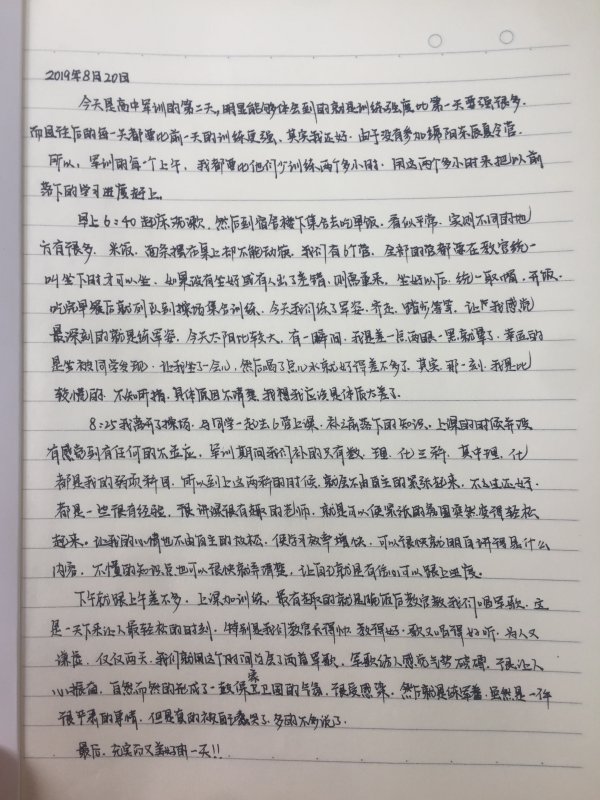 2019年8月20日
今天是高中军训的第二天，明显能够体会到的就是训练强度比第一天要强很多.
而且往后的每一天都要比前一天的训练更强，其实我还好，由于没有参加绵阳东辰夏令营.
所以，军训的每一个上午，我都要比他们少训练两个多小时.用这两个多小时来把以前
落下的学习进度赶上。
早上6:40起床洗漱，然后到宿舍楼下集合去吃早饭，看似平常，实则不同的地
方有很多，米饭，面条摆在桌上却不能动筷，我们有6个营，全部的营都要在教官统一
叫坐下时才可以坐，如果没有坐好或有人出了差错，则需重来，坐好以后，统一取帽，开饭.
吃完早餐后就列队到操场集合训练，今天我们练了军姿，齐走，踏步等等，让我感觉
最深刻的就是练军姿，今天太阳比较大，有一瞬间，我是差一点两眼一黑就晕了，幸运的
是坐被同学发现，让我坐了一会儿，然后喝了点儿水就好得差不多了.其实，那一刻，我是比
较慌的，不知所措，具体原因不清楚，我想我应该是体质太差了.
8:25我离开了操场，与同学一起去6营上课，补之前落下的知识，上课的时候并没
有感觉到有任何的不适应，军训期间我们补的只有数、理、化三科，其中理、化
都是我的弱项科目，所以到上这两科的时候，就会不由自主的紧张起来，不过还好.
都是一些很有经验，很讲课很有趣的老师，就是可以使紧张的氛围突然变得轻松
起来。让我的心情也不由自主的放松，使学习效率增快，可以很快就明白讲得是什么
内容，不懂的知识点也可以很快就弄清楚，让自己就是有信心可以跟上进度。
下午就跟上午差不多，上课加训练，最有趣的就是晚饭后教官教我们唱军歌，这
是一天下来让人最轻松的时刻，特别是我们教官长得帅，教得好，歌又唱得好听，为人又
谦虚，仅仅两天，我们就用这个时间学会了两首军歌，军歌给人感觉气势磅礴，很让人
心心振奋，自然而然的形成了一致保家卫国的气氛，很受感染。然后就是练军姿，虽然是一件
很平常的事情，但是真的被自己蠢哭了，多的不多说了.
最后，充实而又美好的一天!!